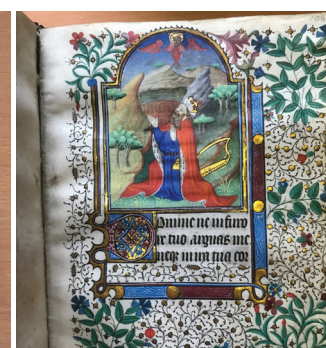 Domine ne in furo
re tuo arguas me
neqz in ira tua cor